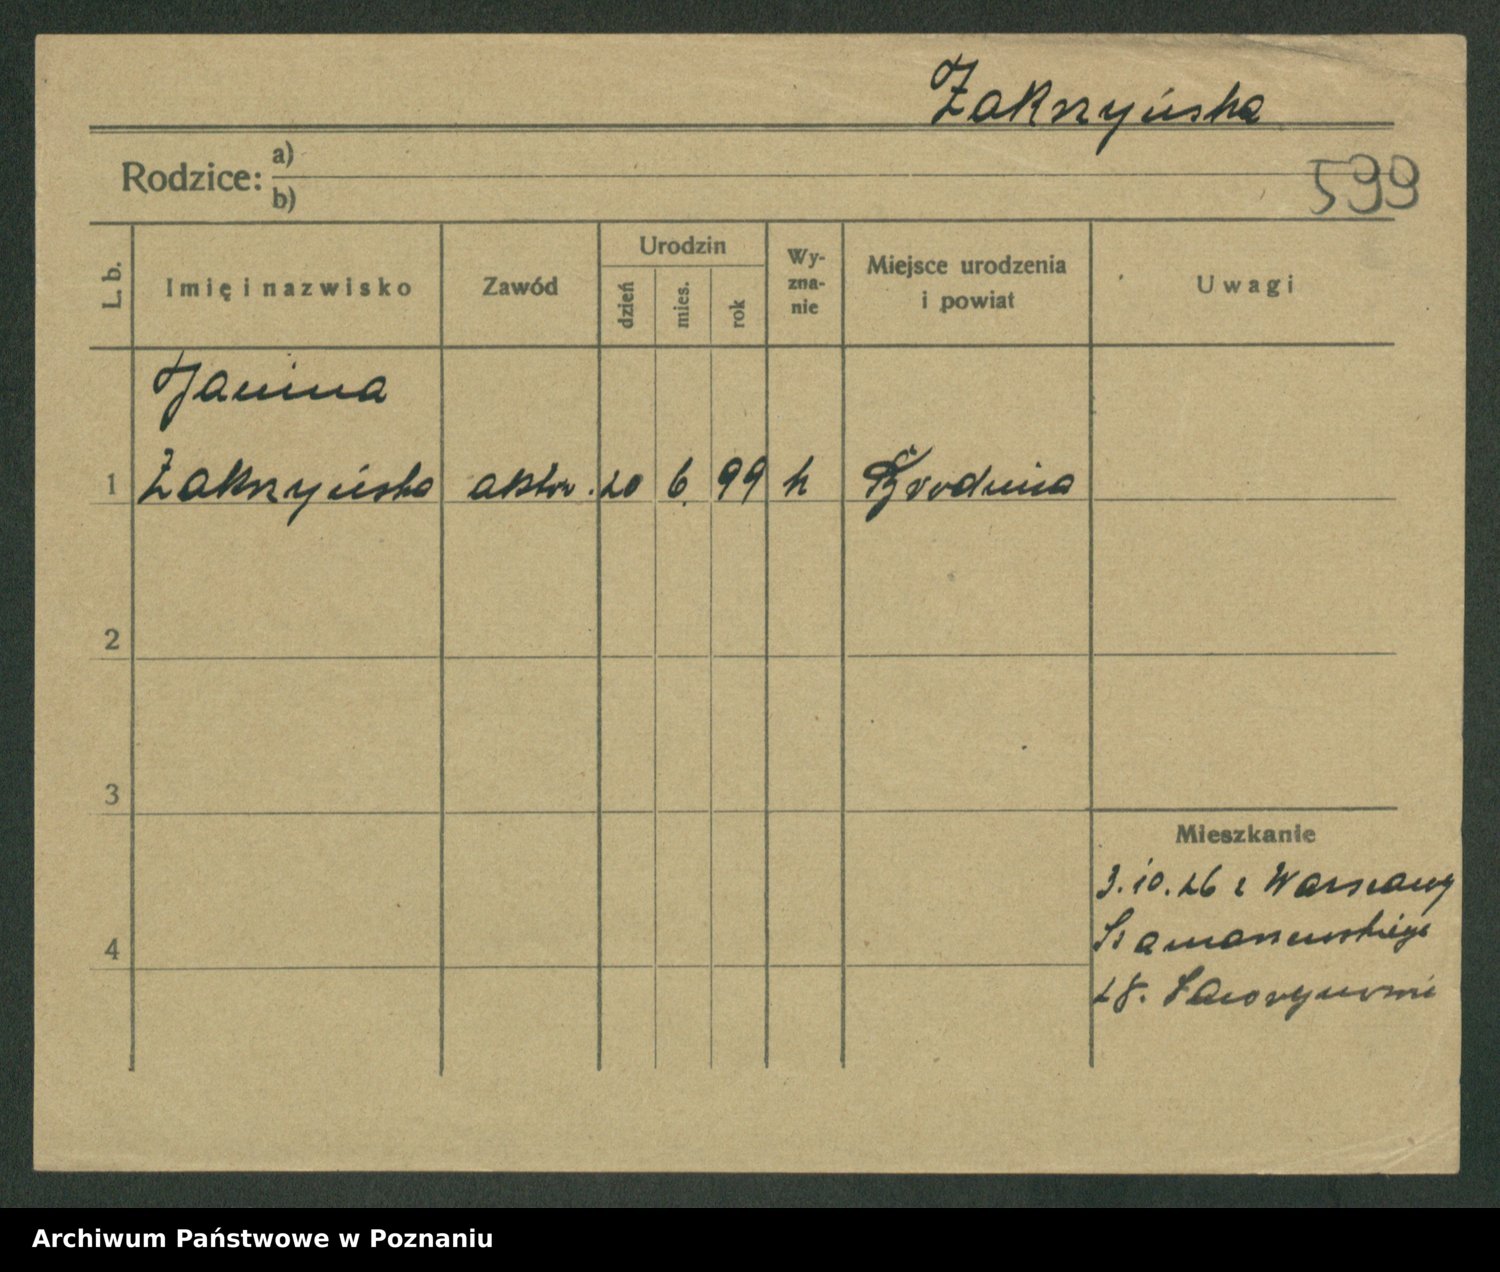 Zakrzyńska
Rodzice: a)
b)
599
L. b.
Imię i nazwisko
Zawód
Urodzin
dzień
mies.
rok
Wy-
zna-
nie
Miejsce urodzenia
i powiat
Uwagi
Janina
1 Zakrzyńska aktor. 20 6. 99 k Brodnica
2
3
4
Mieszkanie
3.10.26 z Warszawy
Szamarzewskiego
28.
Archiwum Państwowe w Poznaniu